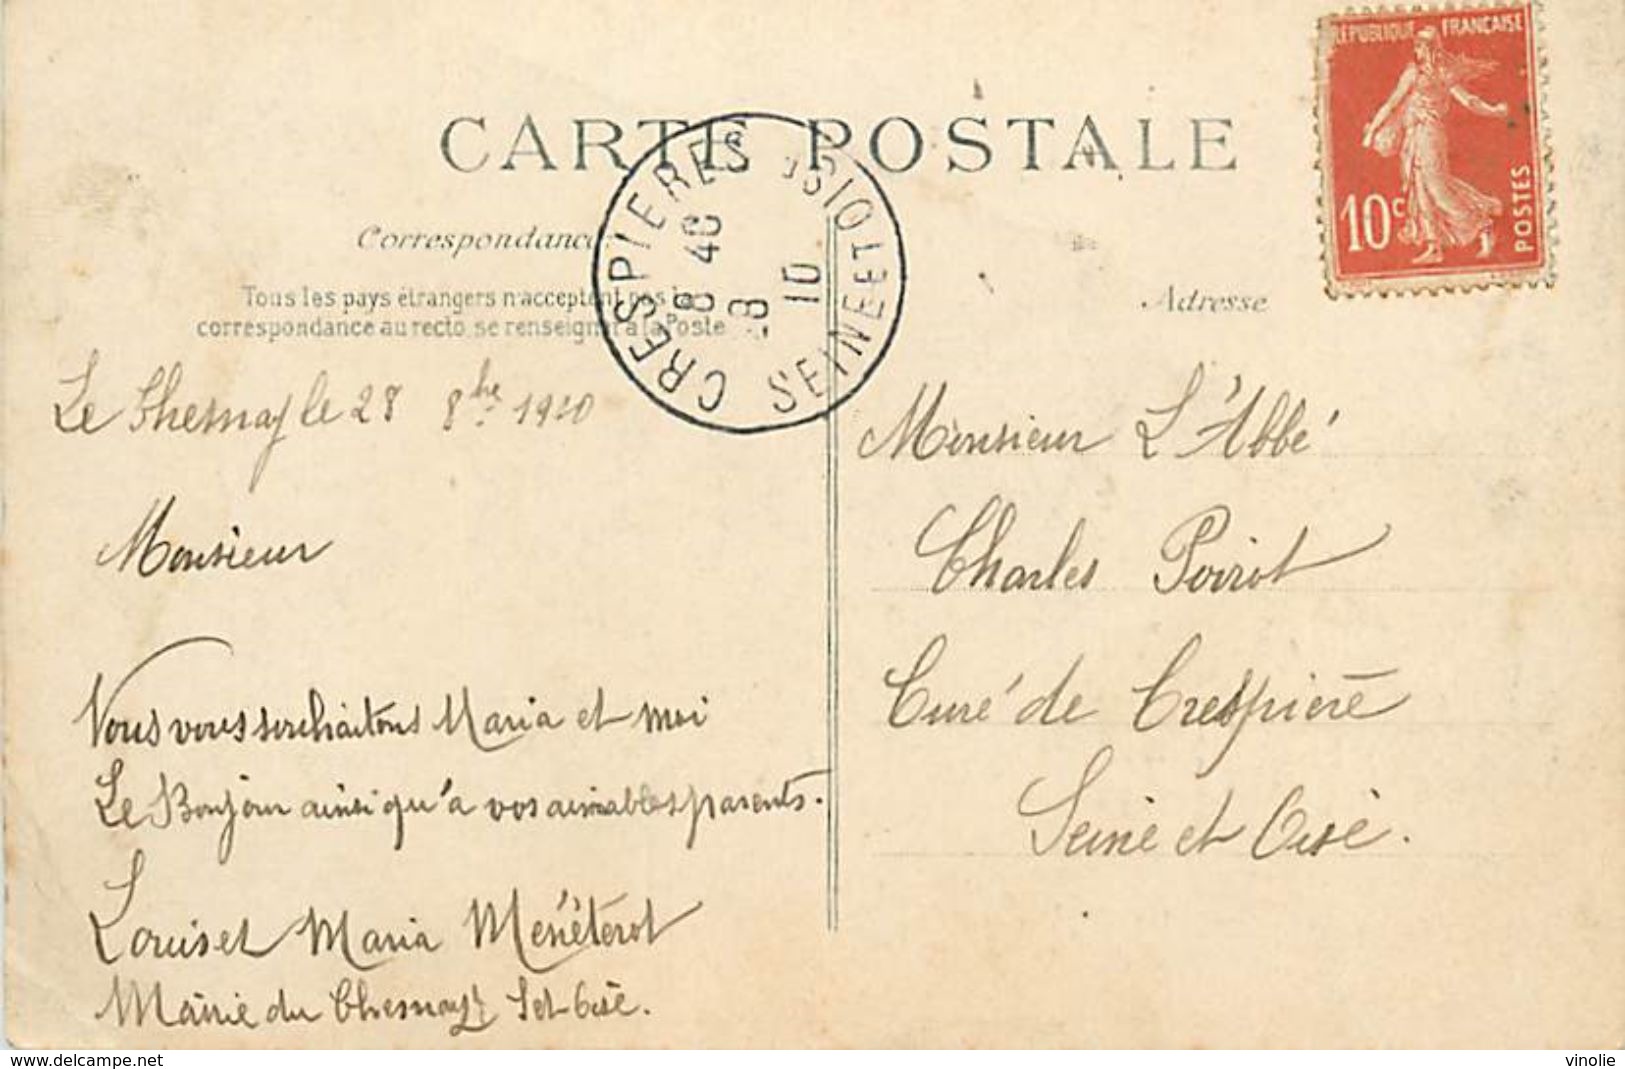 CARTE POSTALE
RÉPUBLIQUE FRANÇAISE
10c
POSTES
CRESPIERES
SEINE ET OISE
8 46
8
10
Correspondance
Tous les pays étrangers n'acceptent pas la
correspondance au recto se renseigner à la Poste
Adresse
Le Chesnay le 28 8bre 1910
Monsieur
Vous vous souhaitons Maria et moi
Le Bonjour ainsi qu'à vos aimables parents.
Louis et Maria Ménéterot
Mairie du Chesnay Set Oise.
Monsieur L'Abbé
Charles Poirot
Curé de Crespière
Seine et Oise.
delcampe.net
vinolie